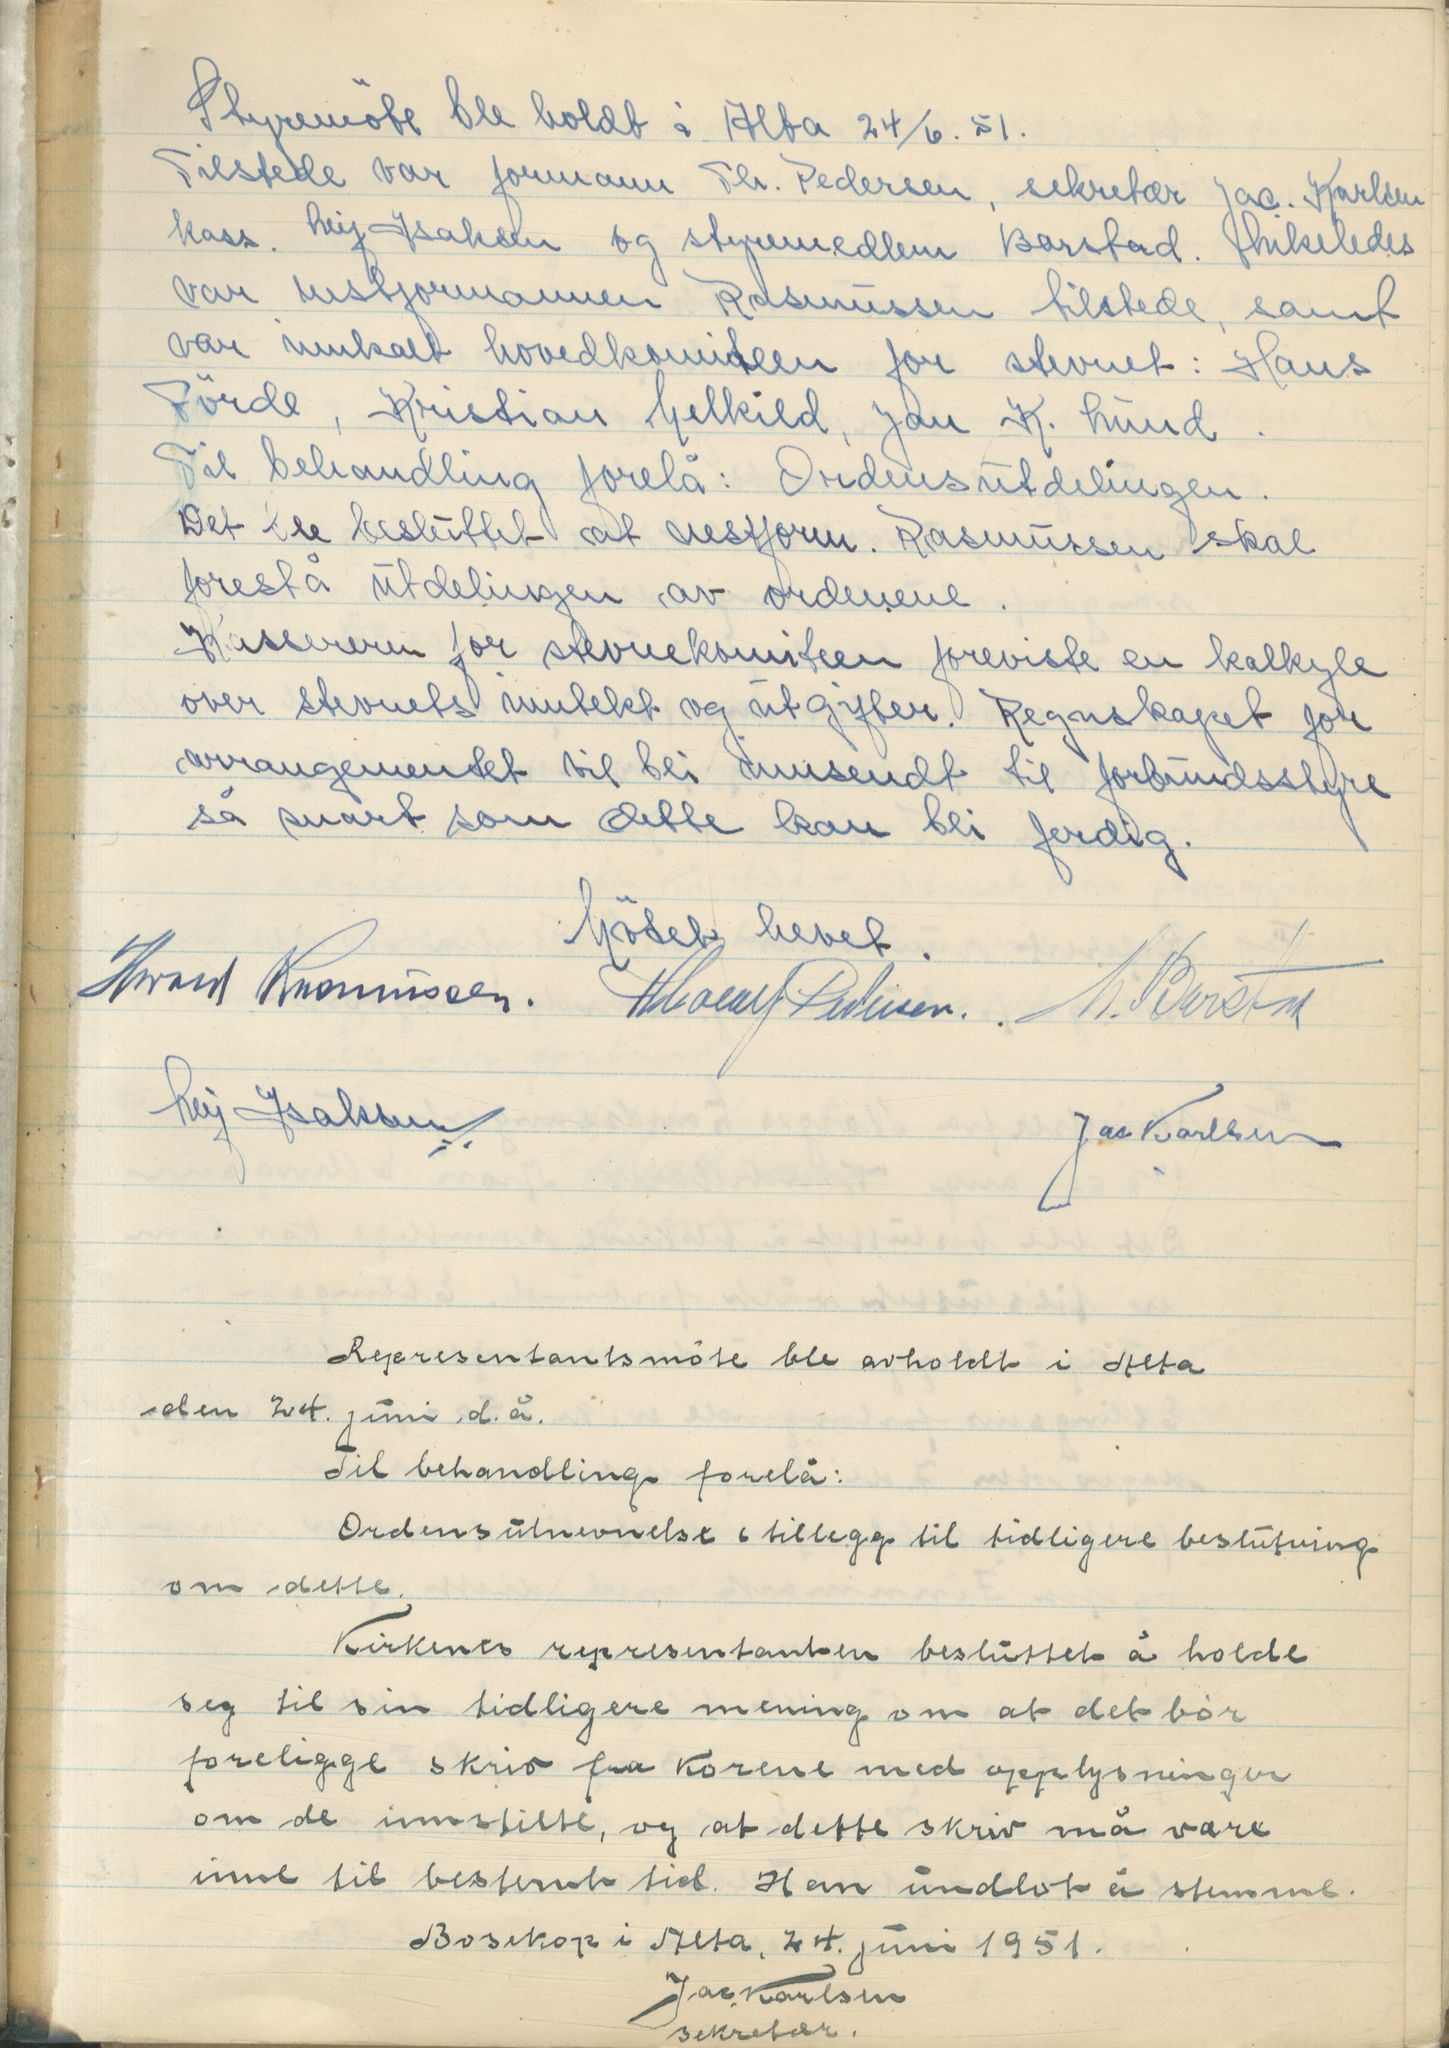 Styremöte ble holdt i Alta 24/6. 51.
Tilstede var formann Th. Pedersen, sekretær Jac. Karlsen
kass. Leif Isaksen og styremedlem Barstad. Likeledes
var nestformannen Rasmussen tilstede, samt
var innkalt hovedkomiteen for stevnet: Hans
Förde, Kristian Melkild, Jan K. Lund.
Til behandling forelå: Ordensutdelingen.
Det ble besluttet at nestform. Rasmussen skal
forestå utdelingen av ordenene.
Kassereren for stevnekomiteen foreviste en kalkyle
over stevnets inntekt og utgifter. Regnskapet for
arrangementet vil bli innsendt til forbundsstyre
så snart som dette kan bli ferdig.
Mötet hevet.
Rasmussen. Pedersen. Barstad
Leif Isaksen
Jac Karlsen
Representantsmöte ble avholdt i Alta
den 24. juni d.å.
Til behandling forelå:
Ordensutnevnelse i tillegg til tidligere beslutning
om dette.
Kirkenes representanten besluttet å holde
seg til sin tidligere mening om at det bör
foreligge skriv fra korene med opplysninger
om de innstilte, og at dette skriv må være
inne til bestemt tid. Han undlot å stemme.
Bosekop i Alta, 24. juni 1951.
Jac. Karlsen
sekretær.